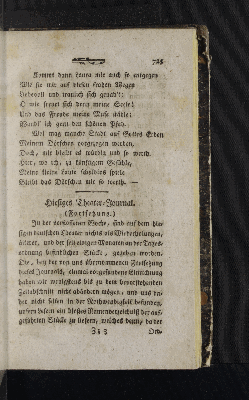 725
Kommt dann Laura mir auch so entgegen
Wie sie mir auf vielen frohen Wegen
Liebevoll und traulich sich genaht:
O wie freuet sich denn meine Seele!
Und das Freude meine Muse wähle:
Wandl' ich gern den schönen Pfad.
Weil mag manche Stadt auf Gottes Erden
Meinem Dörfchen vorgezogen werden,
Doch, mir bleibt es würdig und so werth.
Hier, wo ich, zu künftigem Gefühle,
Meine kleine Laute schuldlos spiele
Bleibt das Dörfchen mir so werth. —
Hiesiges Theater-Journal.
(Fortsetzung.)
In der verflossenen Woche, sind auf dem hie-
sigen deutschen Theater nichts als Wiederholungen,
älterer, und der seit einigen Monaten an der Tages-
ordnung befindlichen Stücke, gegeben worden.
Die, bey der von uns übernommenen Fortsetzung
dieses Journals, einmal vorgefundene Einrichtung
haben wir wenigstens bis zu dem bevorstehenden
Zeitabschnitt nicht abändern mögen, und uns da-
her nicht selten in der Nothwendigkeit befunden,
unsern Lesern ein bloßes Namenverzeichniß der auf-
geführten Stücke zu liefern, welches dann, da der
Zz 3